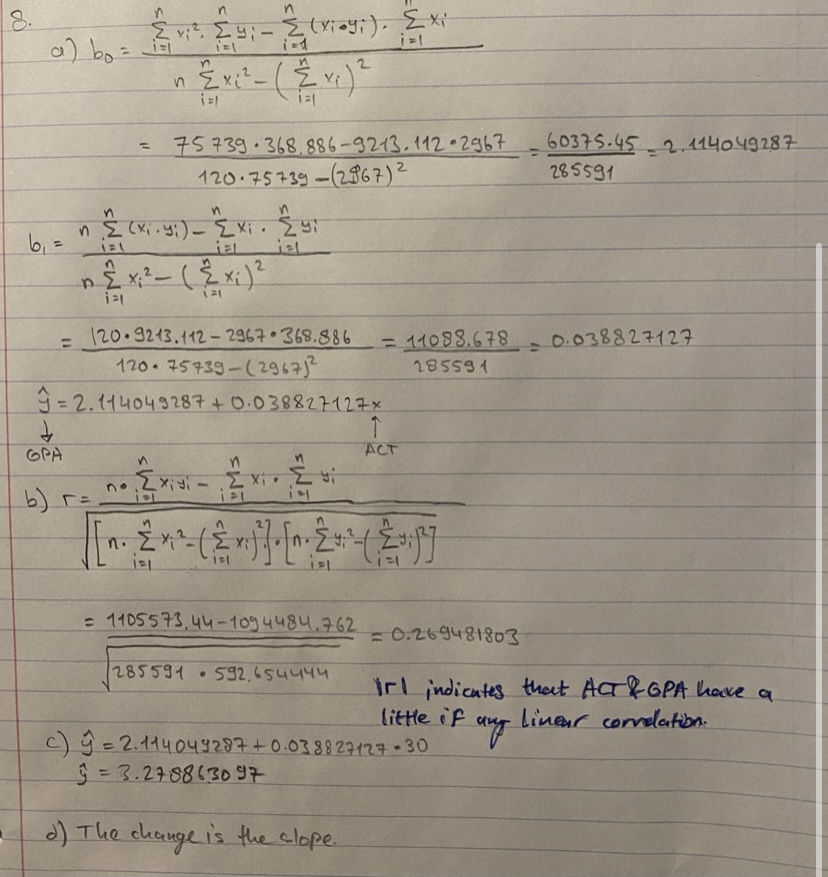 8.
a) b₀ = (∑_{i=1}^{n} xᵢ² · ∑_{i=1}^{n} yᵢ − ∑_{i=1}^{n} (xᵢ·yᵢ) · ∑_{i=1}^{n} xᵢ) / (n ∑_{i=1}^{n} xᵢ² − (∑_{i=1}^{n} xᵢ)²)
= (75739 · 368.886 − 9213.112 · 2967) / (120 · 75739 − (2967)²) = 60375.45 / 285591 = 2.114049287
b₁ = (n ∑_{i=1}^{n} (xᵢ·yᵢ) − ∑_{i=1}^{n} xᵢ · ∑_{i=1}^{n} yᵢ) / (n ∑_{i=1}^{n} xᵢ² − (∑_{i=1}^{n} xᵢ)²)
= (120 · 9213.112 − 2967 · 368.886) / (120 · 75739 − (2967)²) = 11088.678 / 285591 = 0.038827127
ŷ = 2.114049287 + 0.038827127x
↓ ↑
GPA ACT
b) r = (n · ∑_{i=1}^{n} xᵢyᵢ − ∑_{i=1}^{n} xᵢ · ∑_{i=1}^{n} yᵢ) / √([n · ∑_{i=1}^{n} xᵢ² − (∑_{i=1}^{n} xᵢ)²] · [n · ∑_{i=1}^{n} yᵢ² − (∑_{i=1}^{n} yᵢ)²])
= (1105573.44 − 1094484.762) / √(285591 · 592.654444) = 0.269481803
|r| indicates that ACT & GPA have a
little if any linear correlation.
c) ŷ = 2.114049287 + 0.038827127 · 30
ŷ = 3.278863097
d) The change is the slope.